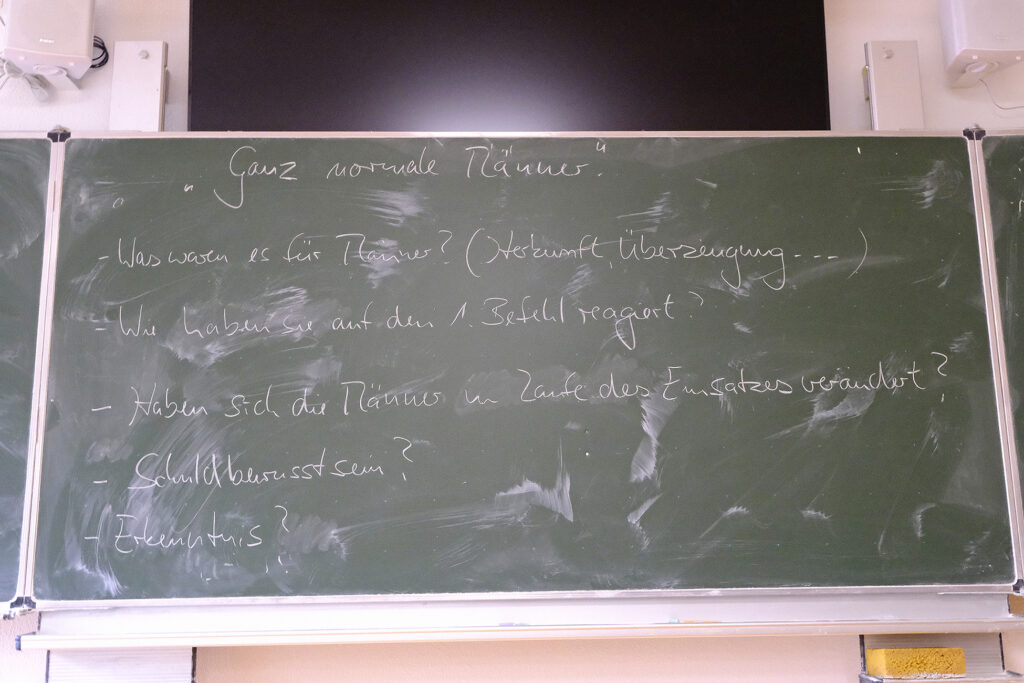 „Ganz normale Männer."
- Was waren es für Männer? (Herkunft, Überzeugung ---)
- Wie haben sie auf den 1. Befehl reagiert?
- Haben sich die Männer im Laufe des Einsatzes verändert?
- Schuldbewusstsein?
- Erkenntnis?